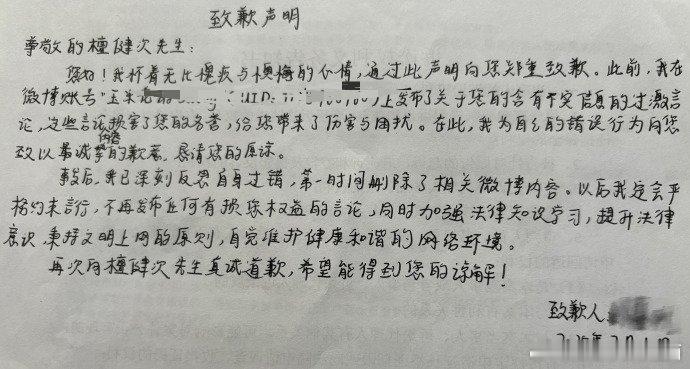 致歉声明
尊敬的檀健次先生：
您好！我怀着无比愧疚与懊悔的心情，通过此声明向您郑重致歉。此前，我在
微博账号"玉米 上发布了关于您的含有不实信息的过激言
论，这些言论损害了您的名誉，给您带来了伤害与困扰。在此，我为自己的错误行为向您
致以最诚挚的歉意，恳请您的原谅。
事后，我已深刻反思自身过错，第一时间删除了相关微博内容。以后我定会严
格约束言行，不再发布任何有损您权益的言论，同时加强法律知识学习，提升法律
意识，秉持文明上网的原则，自觉维护健康和谐的网络环境。
再次向檀健次先生真诚道歉，希望能得到您的谅解！
致歉人